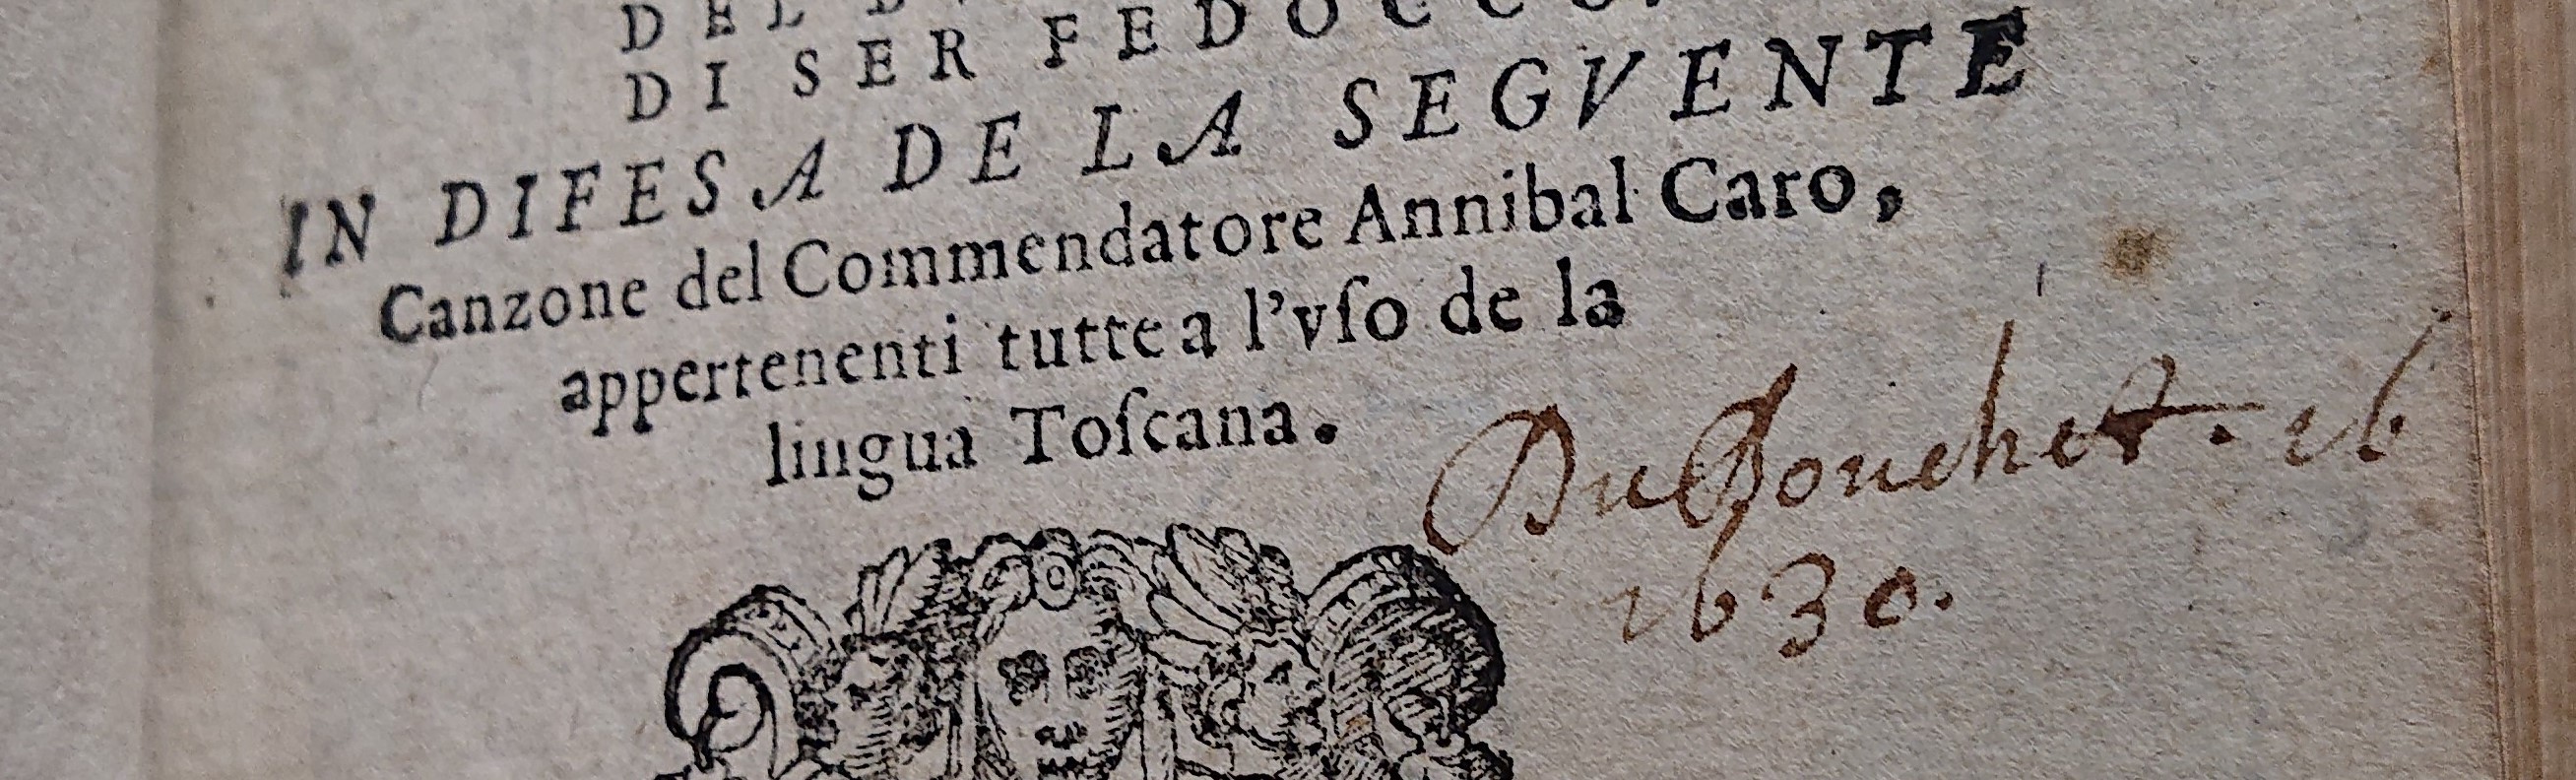 DEL
DI SER FEDOCCO.
IN DIFESA DE LA SEGVENTE
Canzone del Commendatore Annibal Caro,
appertenenti tutte a l'vſo de la
lingua Toſcana.
Du Bouchet. 16
1630.